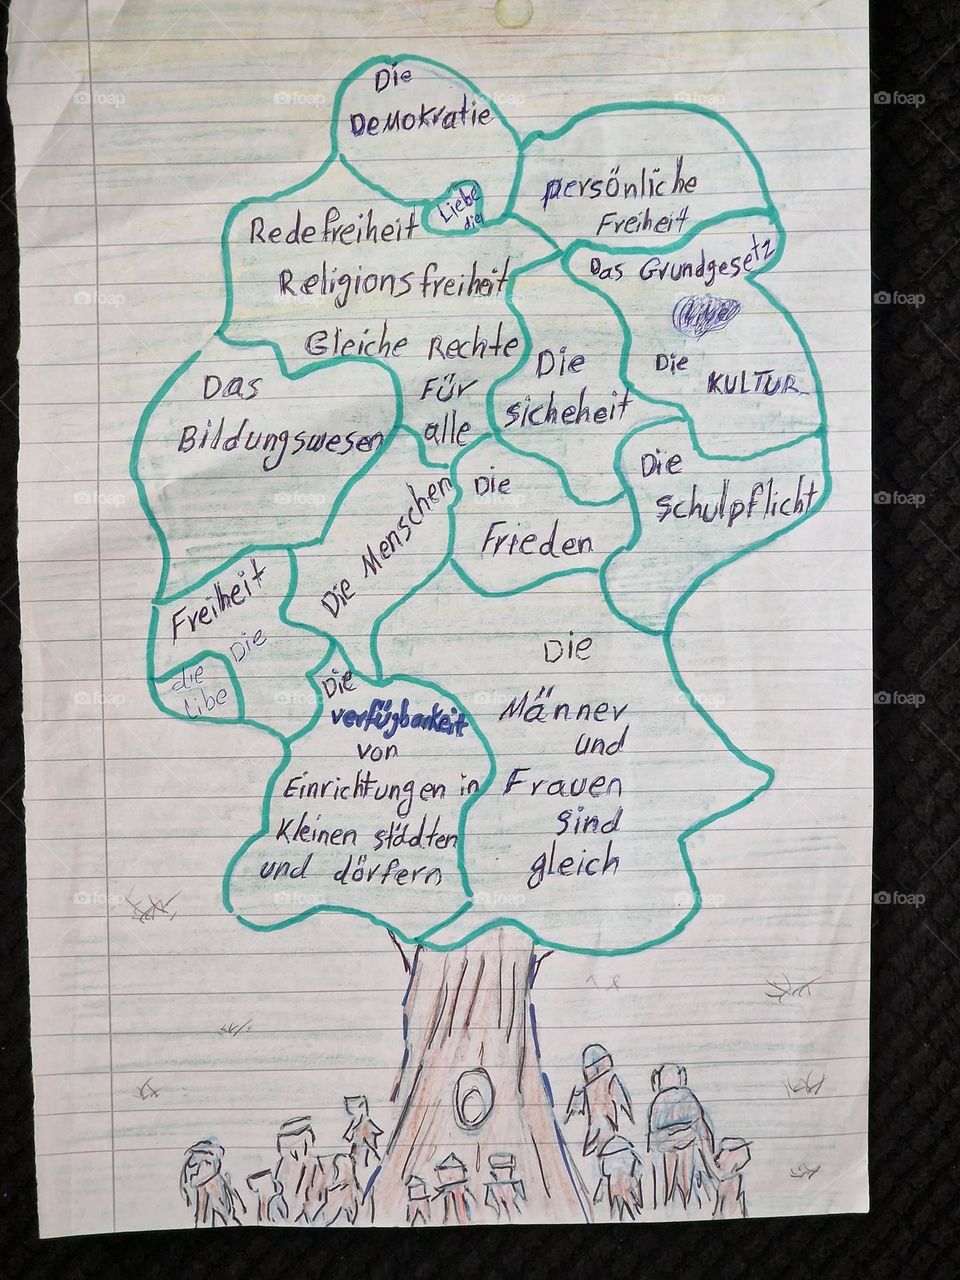 Die
Demokratie
Liebe
die
persönliche
Freiheit
Redefreiheit
Religionsfreiheit
Gleiche Rechte
Für
alle
Das Grundgesetz
Die
KULTUR
Die
sicheheit
Das
Bildungswesen
Die Menschen
Die
Frieden
Die
schulpflicht
Freiheit
Die
die
Libe
Die
verfügbarkeit
von
Einrichtungen in
Kleinen städten
und dörfern
Die
Männer
und
Frauen
sind
gleich
foap